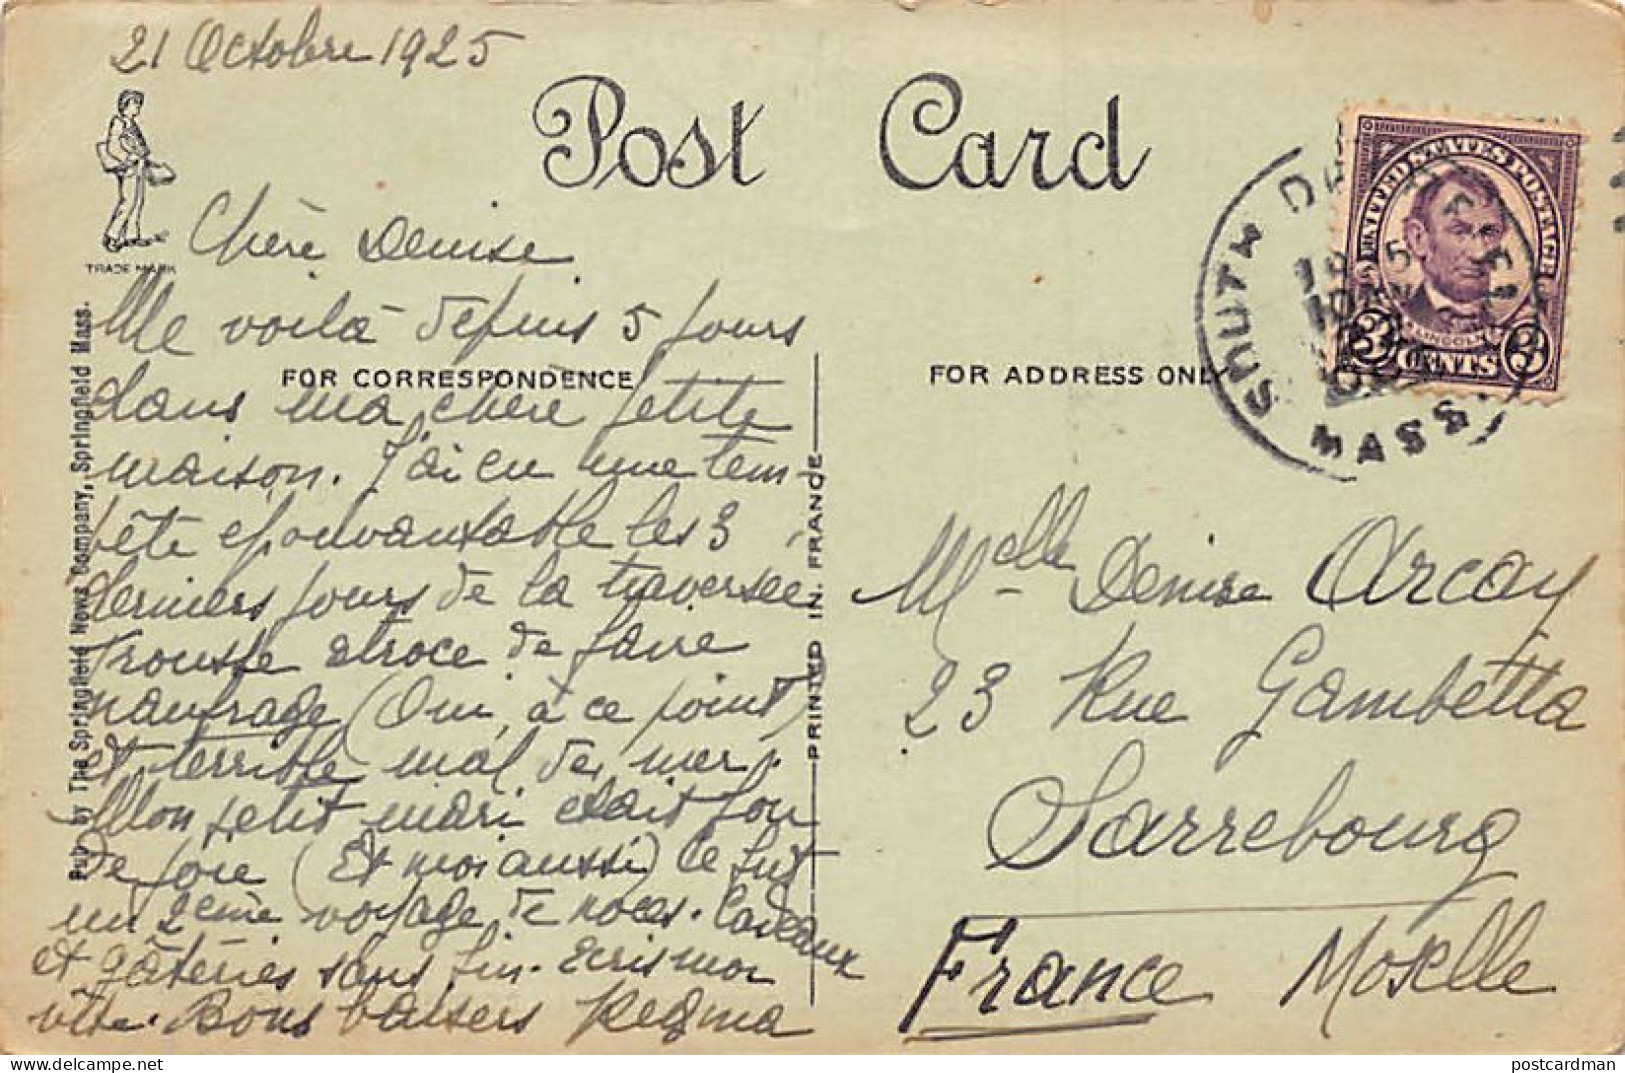 21 Octobre 1925
Post Card
TRADE MARK
Chère Denise
Me voilà depuis 5 jours
FOR CORRESPONDENCE
dans ma chère petite
maison. J'ai eu une tem-
pête épouvantable les 3
derniers jours de la traversée
Frousse atroce de faire
naufrage (Oui, à ce point)
et terrible mal de mer.
Mon petit mari était fou
de joie (Et moi aussi) Ce fut
un 2ème voyage de noces. Cadeaux
et gâteries sans fin. Ecris moi
vite. Bons baisers Regina
Pub. by The Springfield News Company, Springfield Mass.
PRINTED IN FRANCE
FOR ADDRESS ONLY
UNITED STATES POSTAGE
LINCOLN
3 CENTS 3
SOUTH DEERFIELD
MASS.
Melle Denise Arcay
23 Rue Gambetta
Sarrebourg
France Moselle
delcampe.net
postcardman